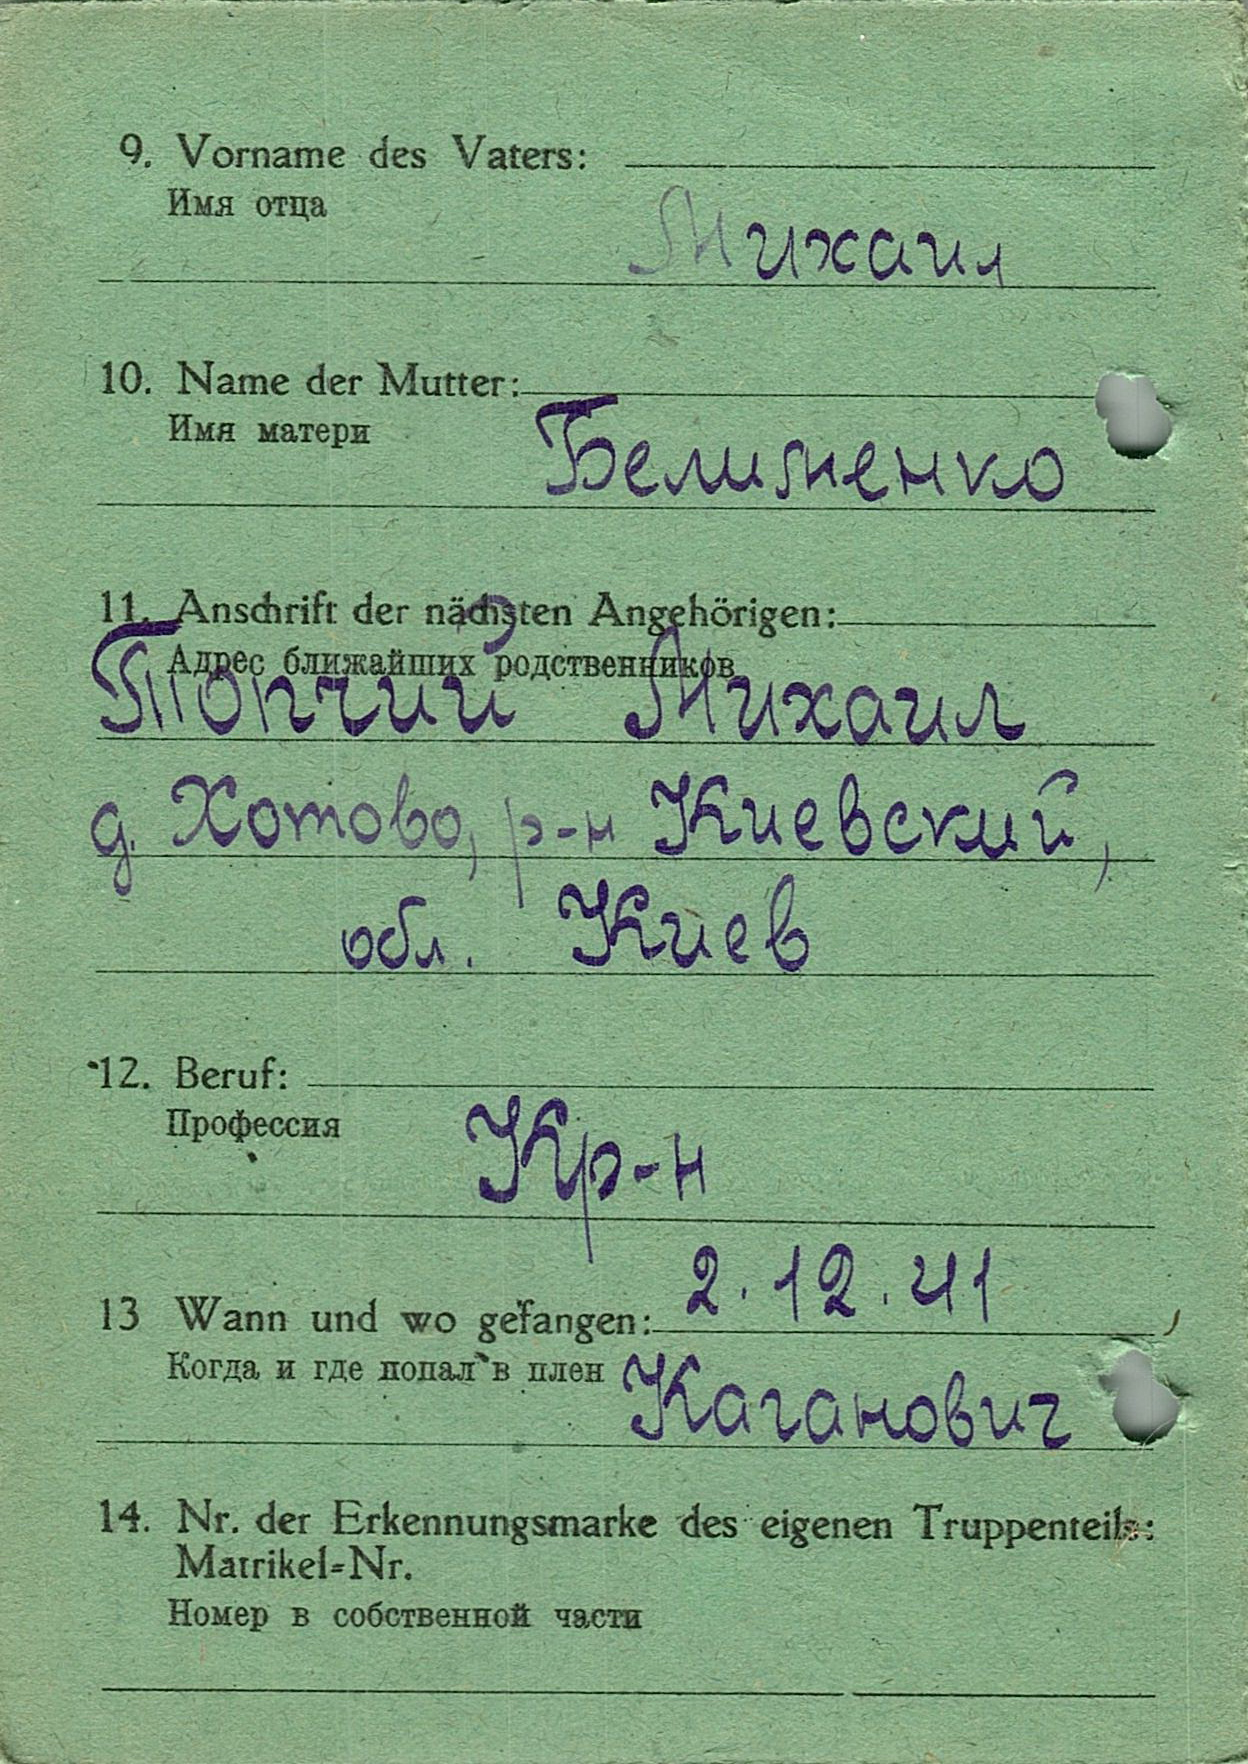 9. Vorname des Vaters:
Имя отца
Михаил
10. Name der Mutter:
Имя матери
Белименко
11. Anschrift der nächsten Angehörigen:
Адрес ближайших родственников
Топчий Михаил
д. Хотово, р-н Киевский,
обл. Киев
12. Beruf:
Профессия
Кр-н
2.12.41
13 Wann und wo gefangen:
Когда и где попал в плен
Каганович
14. Nr. der Erkennungsmarke des eigenen Truppenteils:
Matrikel=Nr.
Номер в собственной части